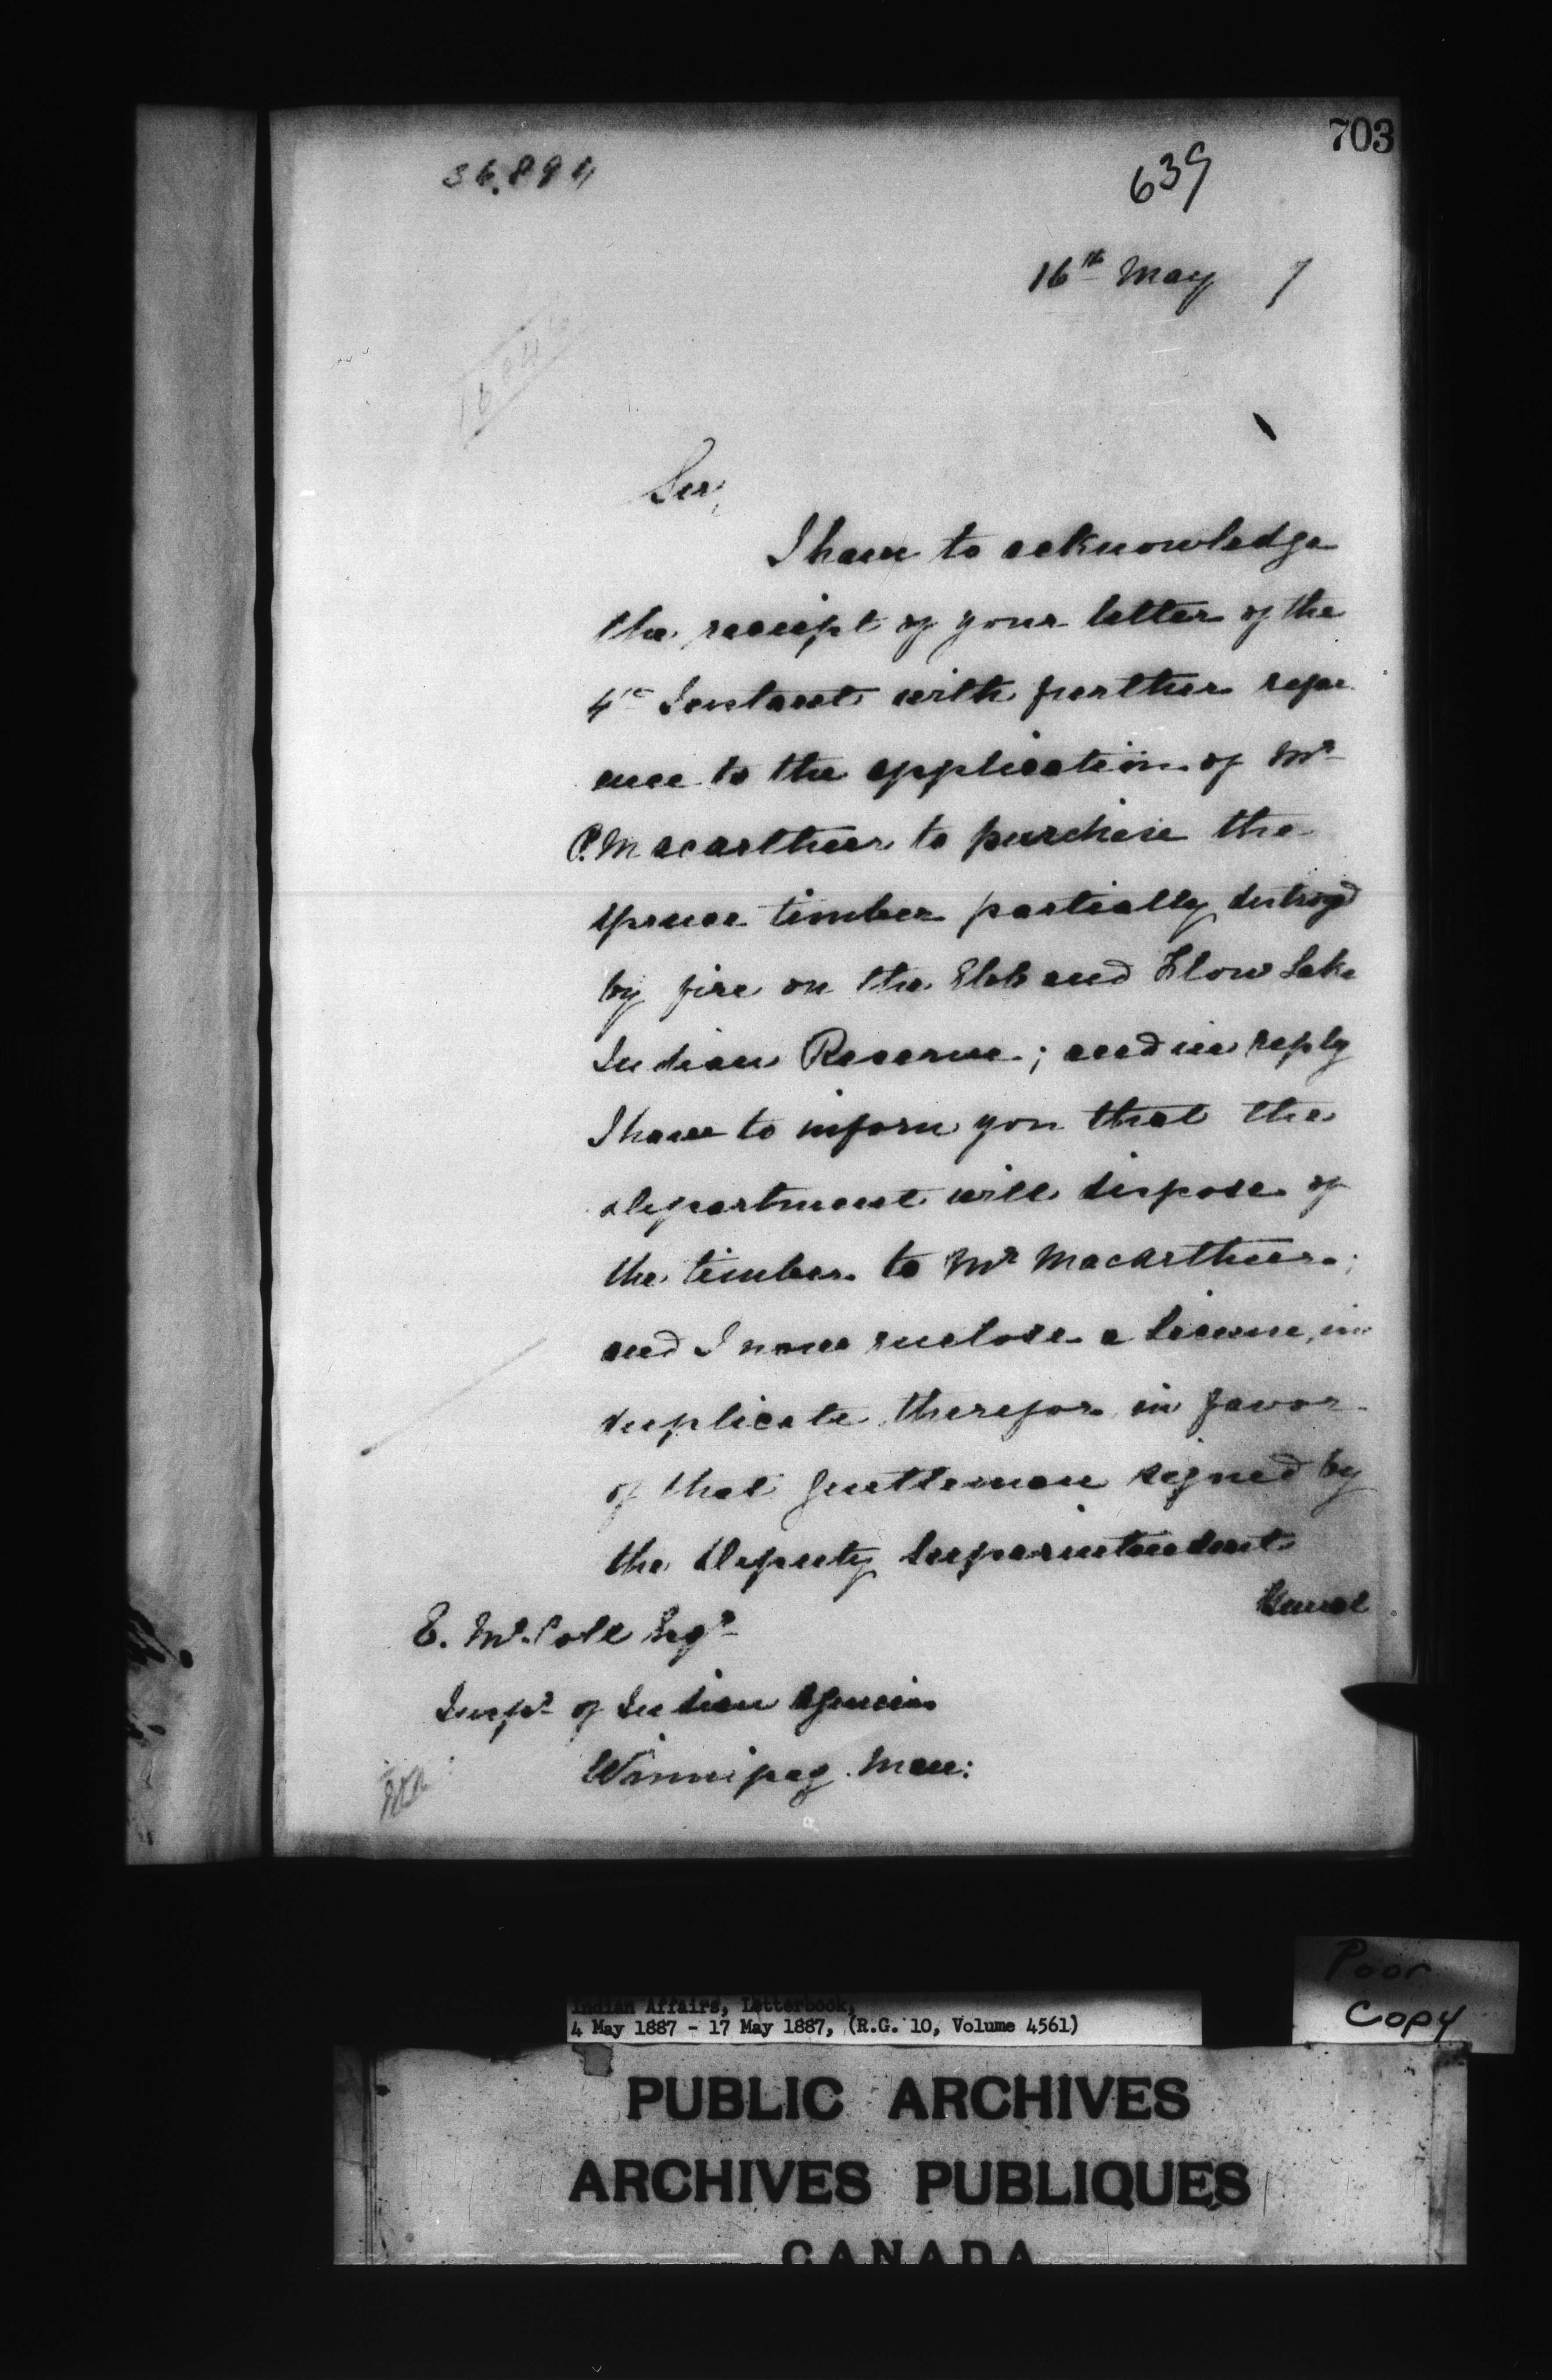 703
36,894
639
16th May 7
Sir,
I have to acknowledge
the receipt of your letter of the
4th Instant with further refer
ence to the application of Mr
P. Macarthur to purchase the
spruce timber partially destroyd
by fire on the Ebb and Flow Lake
Indian Reserve; and in reply
I have to inform you that the
Department will dispose of
the timber to Mr Macarthur;
and I now enclose a License, in
duplicate therefor in favor
of that gentleman signed by
the Deputy Superintendent
General
E. McColl Esqr
Inspr of Indian Agencies
Winnipeg Man:
Poor
Copy
Indian Affairs, Letterbook,
4 May 1887 - 17 May 1887, (R.G. 10, Volume 4561)
PUBLIC ARCHIVES
ARCHIVES PUBLIQUES
CANADA